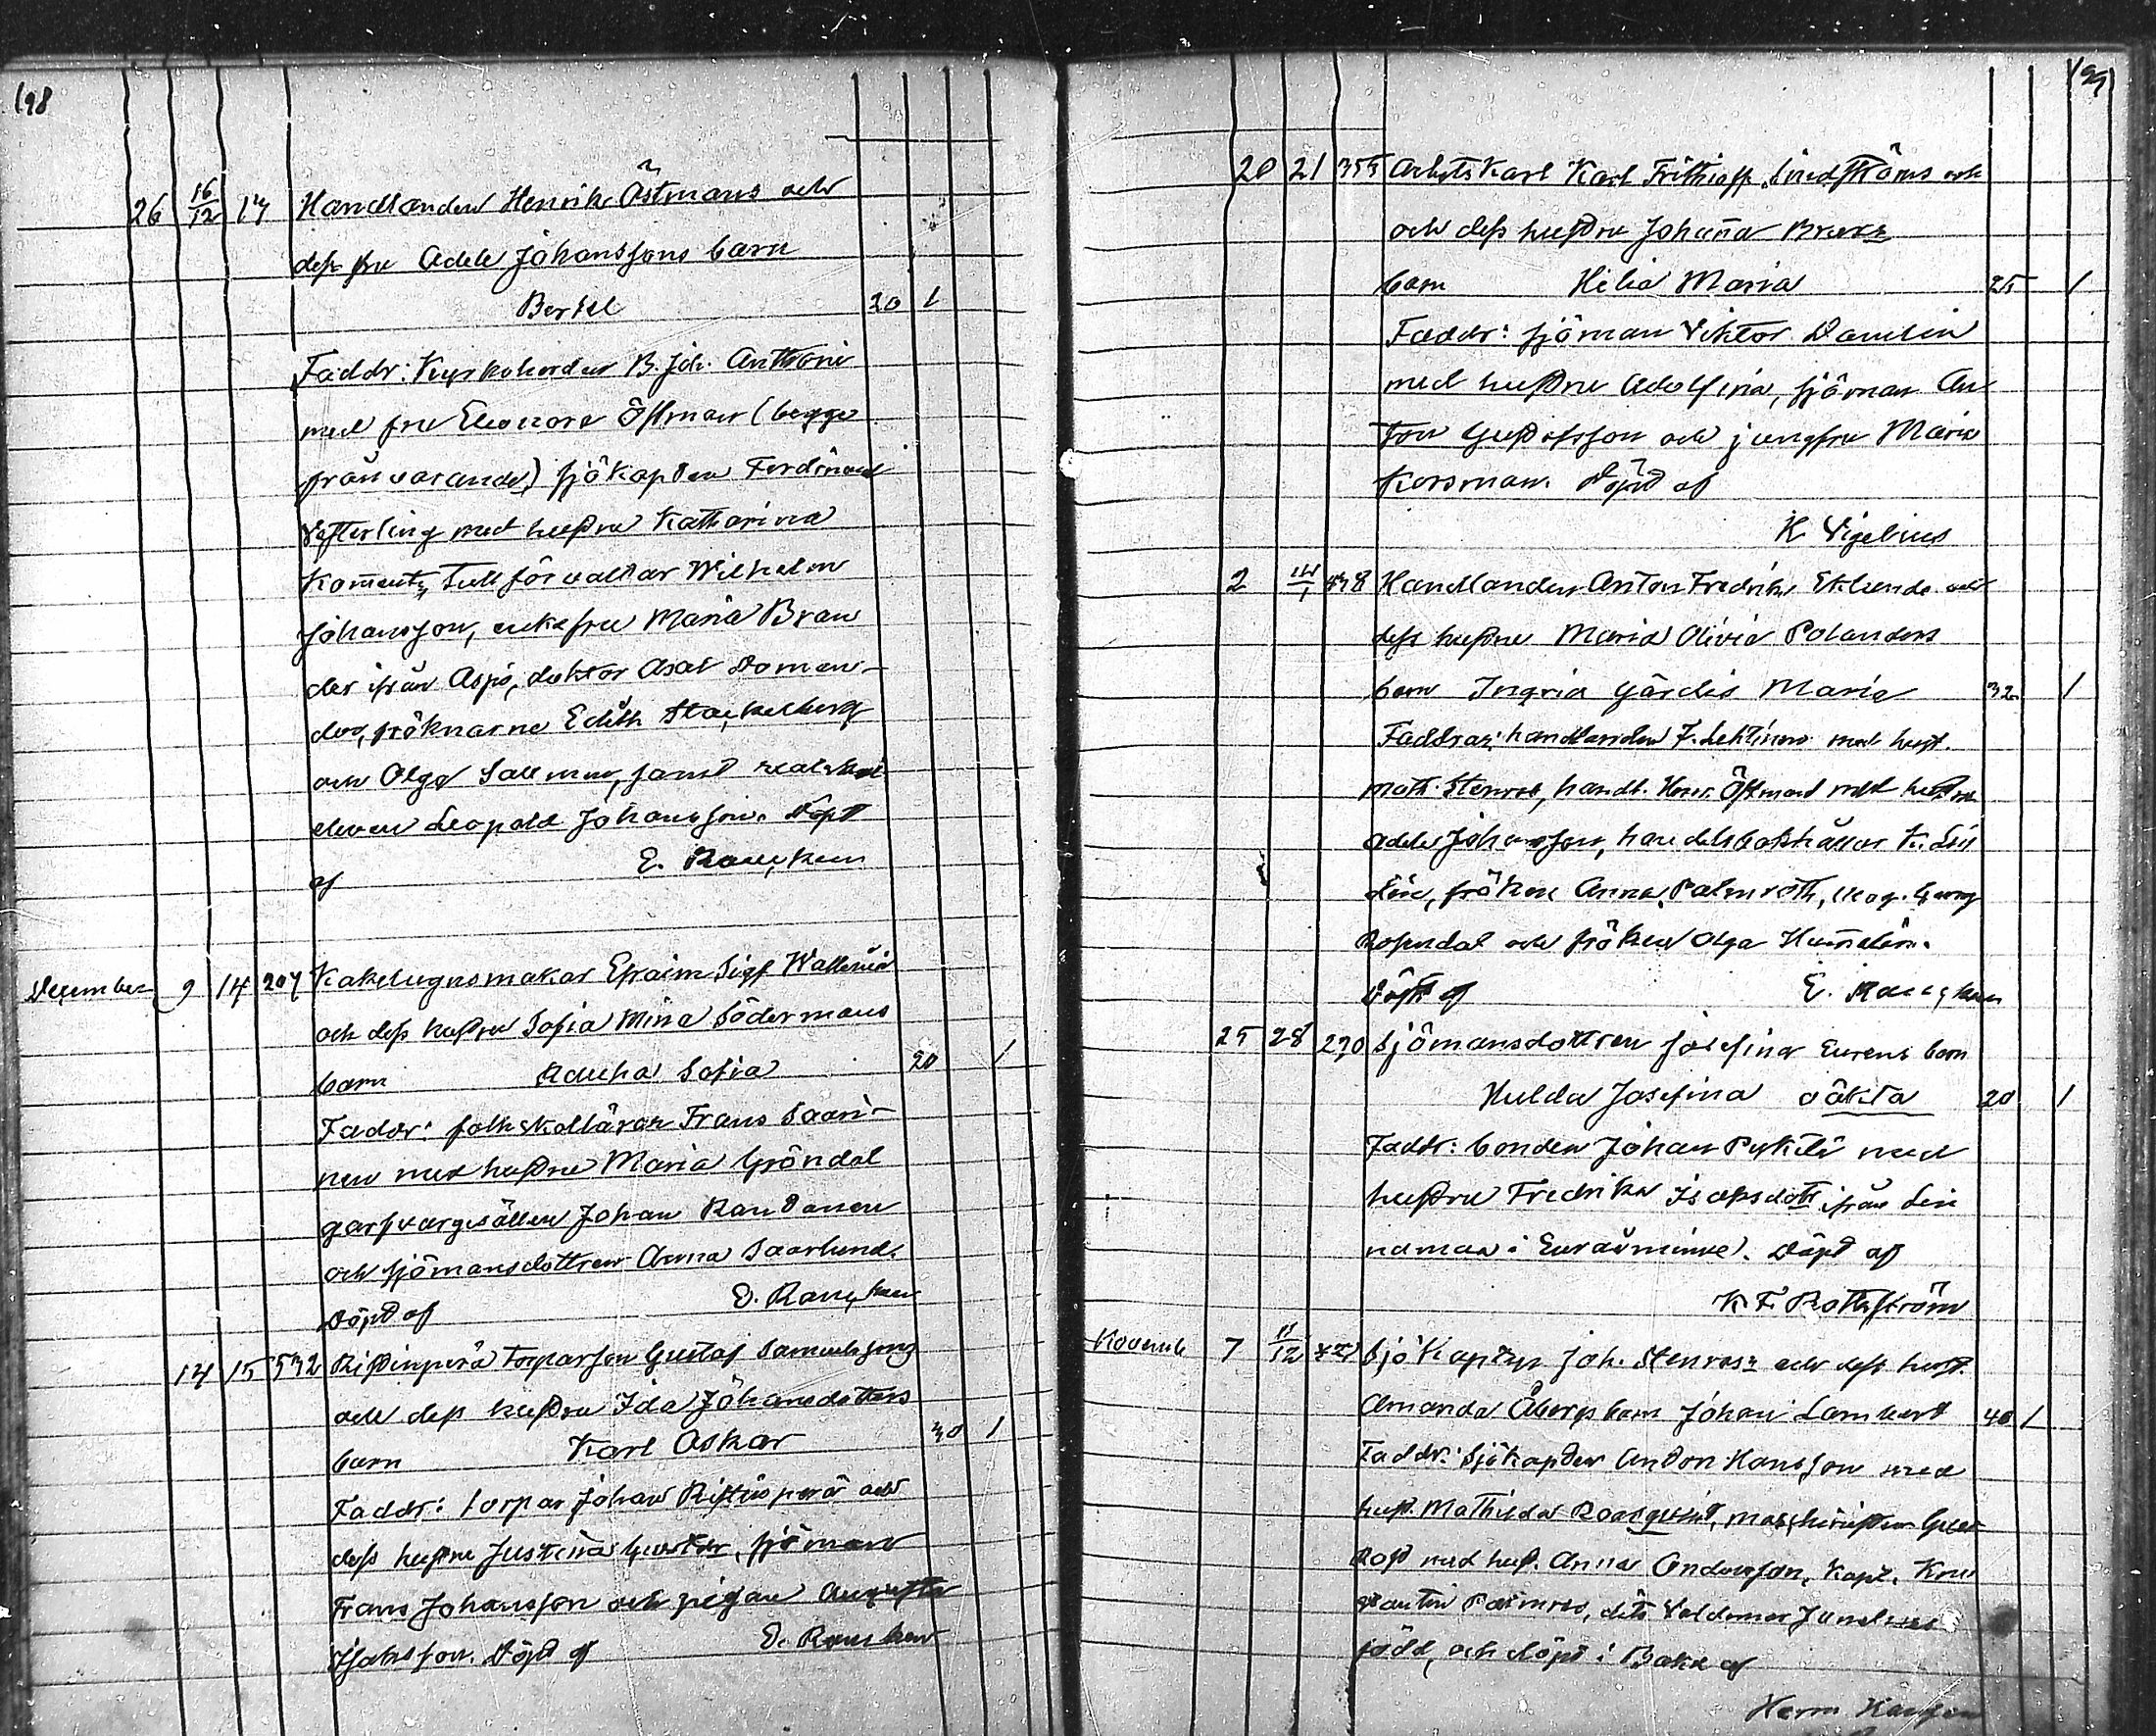 198
26 16/12 17 Handlanden Henrik Östmans och
dess fru Adele Johanssons barn
Bertel 20 1
Faddr: Kyrkoherden B. Joh. Anthoni
med fru Eleonora Östman (begge
frånvarande) sjökapten Ferdinand
Vesterling med hustru Katharina
tullförvaltar Wilhelm
Johansson, enkefru Maria Bran
der ifrån Aspö, doktor Axel Doman-
der, fröknarne Edith Stackelberg
och Olga Sallmén, samt realskol
eleven Leopold Johansson. Döpt
af E. Rancken
December 9 14 207 Kakelugnsmakar Efraim Sigf Wallenii
och dess hustru Sofia Mina Södermans
barn Sofia 20 1
Faddr: folkskollärar Frans Saari-
nen med hustru Maria Gröndal
garfvargesällen Johan Rautanen
och sjömansdottren Anna Saarlund.
Döpt af E. Rancken
14 15 532 Ristinperä torparson Gustaf Samuelssons
och dess hustru Ida Johansdotters
barn Karl Oskar 30 1
Faddr: torpar Johan Ristinperä och
dess hustru Justina sjöman
Frans Johansson och pigan Augusta
Isaksson. Döpt af E. Rancken
199
20 21 355 Arbetskarl Karl Frithioff Lindströms och
och dess hustru Johanna
barn Hilja Maria 25 1
Faddr: sjöman Viktor Danelin
med hustru Adolfina, sjöman An
ton Gustafsson och jungfru Maria
Korsman. Döpt af
K Vigelius
2 Handlanden Anton Fredrik Eklunds och
dess hustru Maria Olivia Polanders
barn Ingrid Gärdis Maria 32 1
Faddrar: handlanden F. Lehtinen med hust.
Math. Stenroos, handl. Henr. Östman med hustru
Adele Johansson, handelsbokhållar K. Lin
din, fröken Anna Palmroth, mag. Georg
Rosendal och fröken Olga Hummelin.
Döpt af E. Rancken
25 28 270 Sjömansdottren Josefina Eurens barn
Hulda Josefina oäkta 20 1
Faddr: bonden Johan Pyktilä med
hustru Fredrika Isaksdotr ifrån Lin
namaa i Euraåminne. Döpt af
K. F. Rothström
Novemb 7 11/12 Sjökapten Joh. Stenroos och dess hust.
Amanda Åbergs barn Johan Lambert 40 1
Faddr: Sjökapten Anton Hansson med
hust. Mathilda Rosqvist, maschinisten Gust
Rost med hust. Anna Andersson, Kapt. Kon
stantin Palmros, dito Valdemar Junelius
född, och döpt i Baku af
Herm Hansen